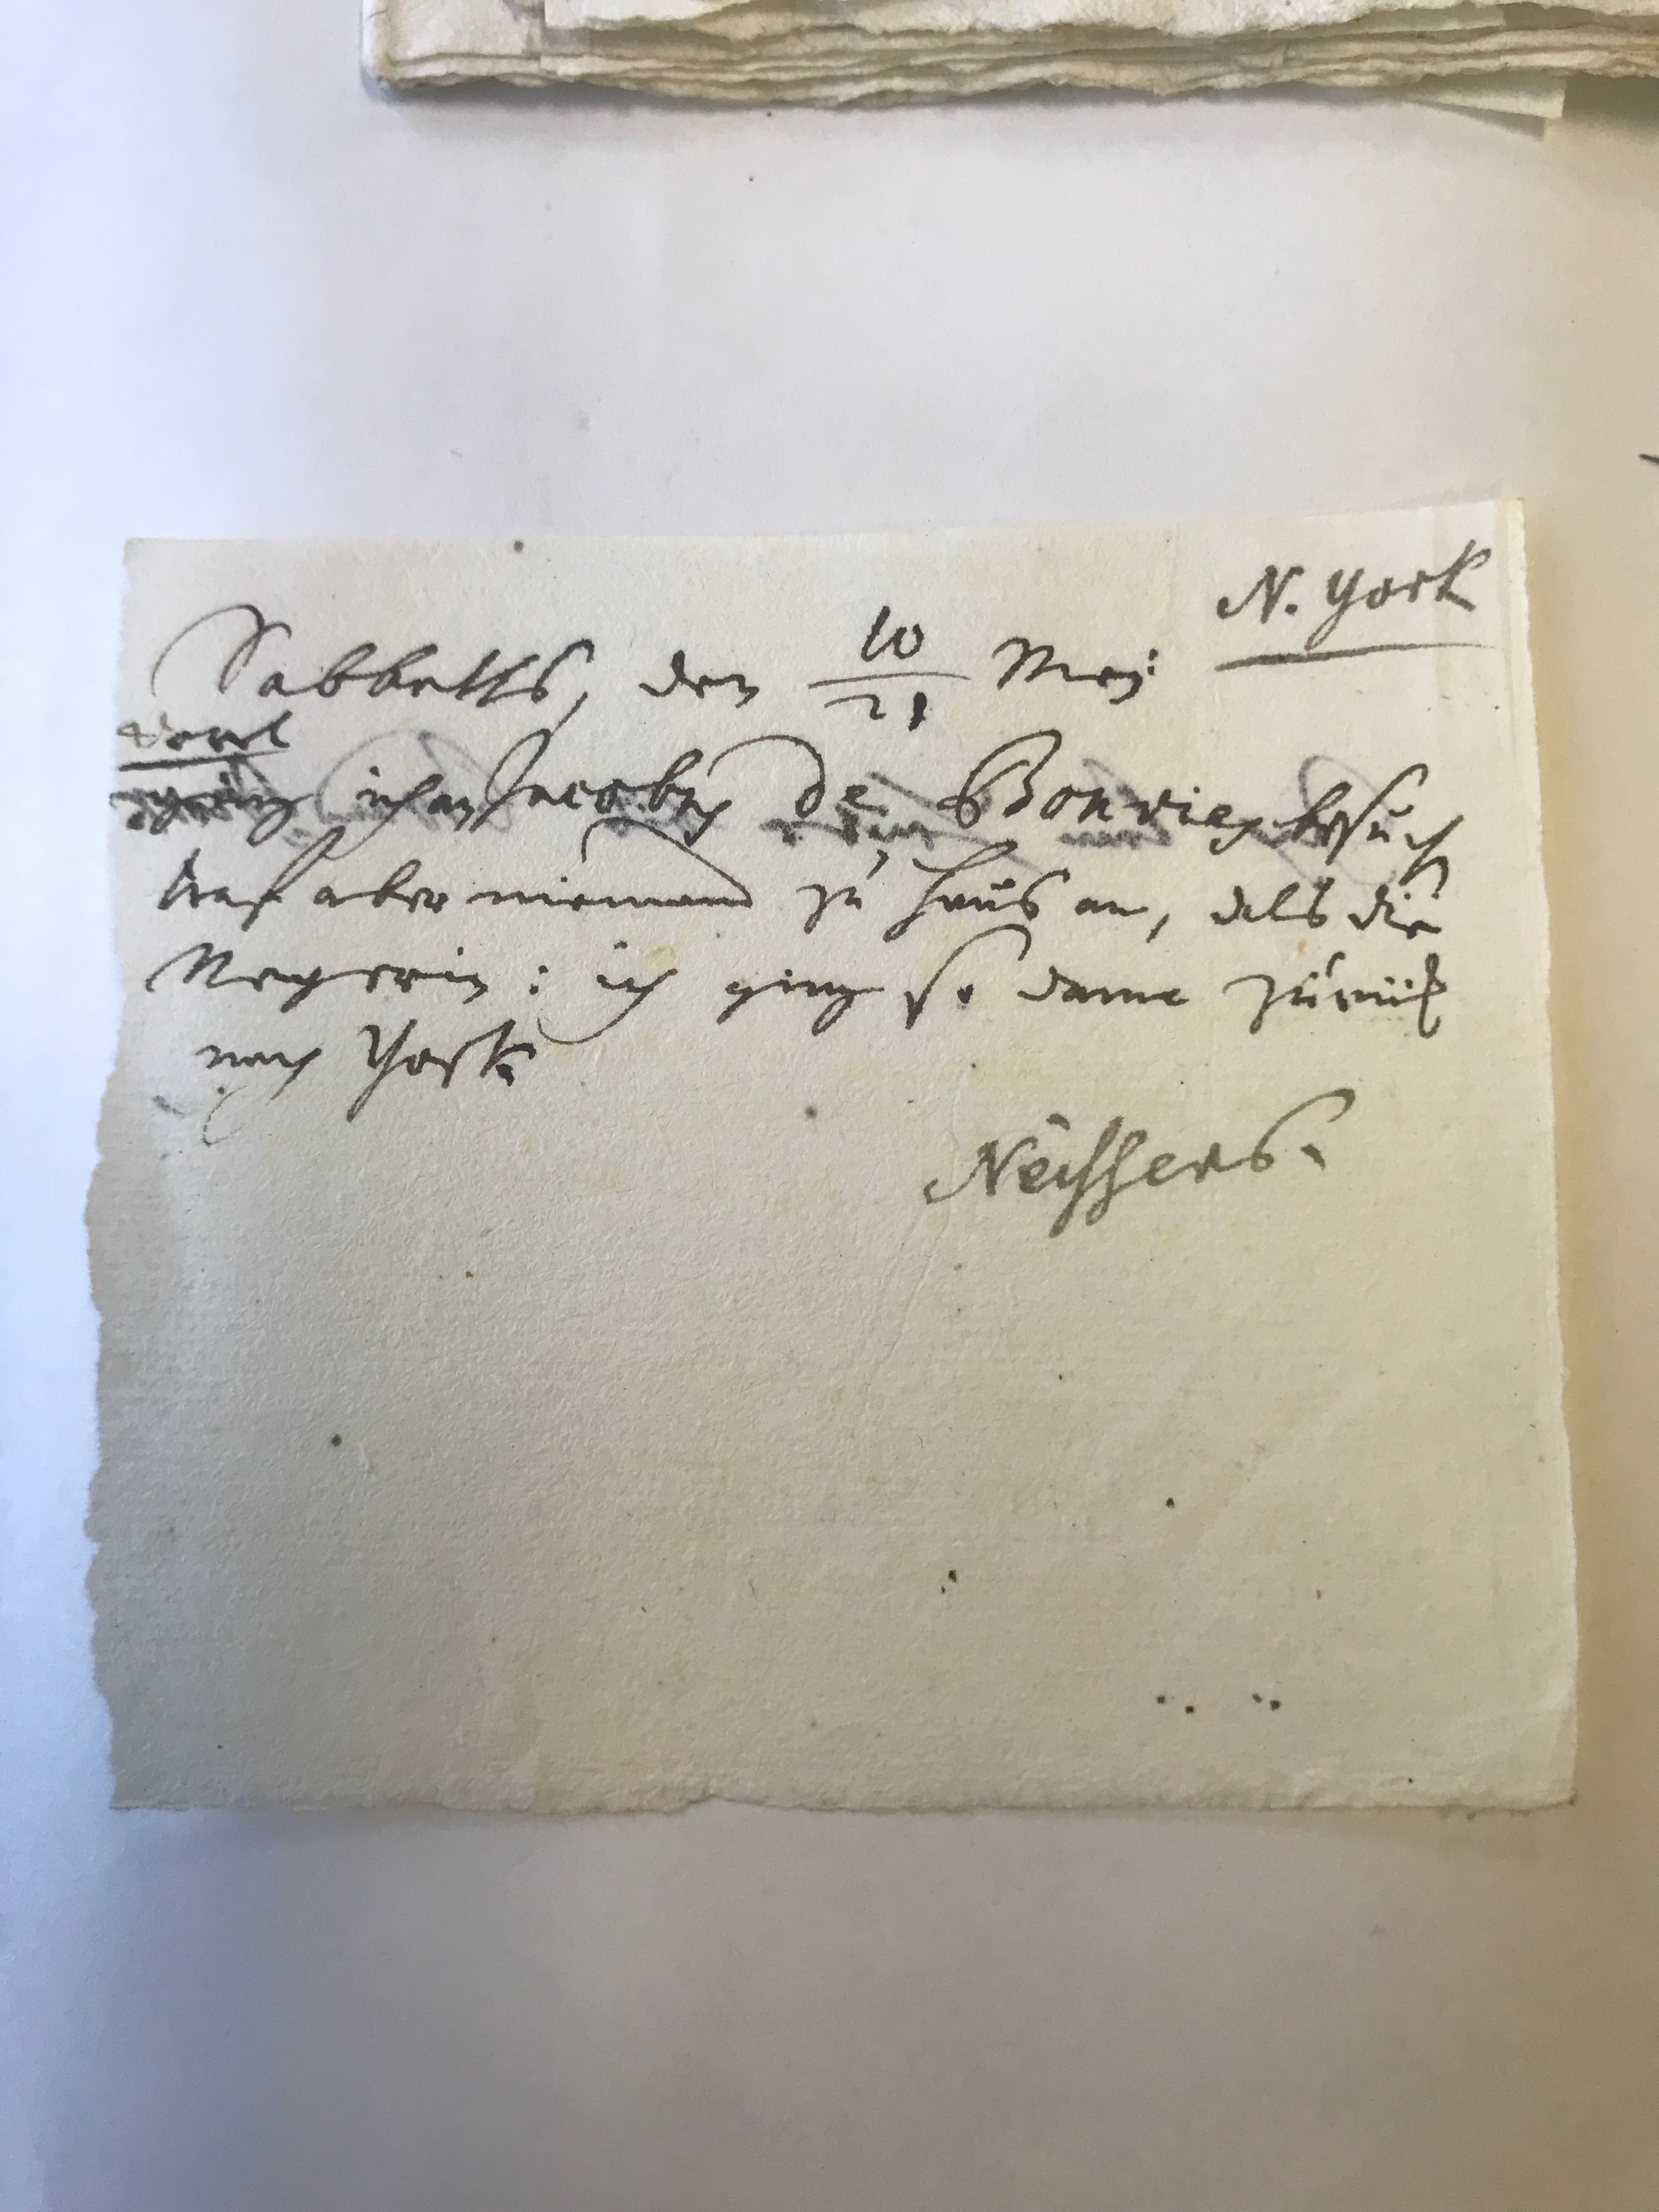 N. York
Sabbaths, den 10/21 Mey:
ging ich an Jacobus De Bonvie, besuch
traf aber niemand zu haus an, als die
Negerin: ich ging so dann zurück
nach York.
Neissers.